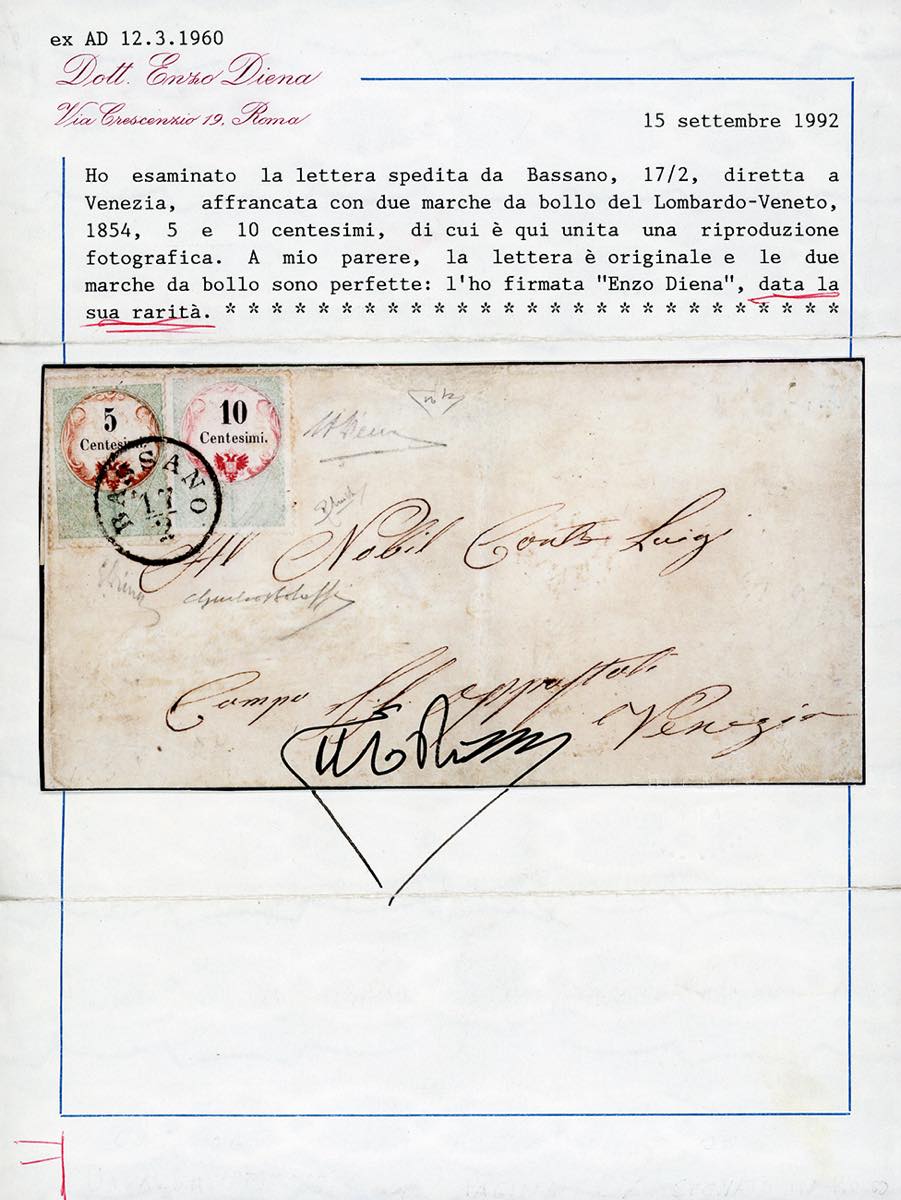 ex AD 12.3.1960
Dott. Enzo Diena
Via Crescenzio 19, Roma
15 settembre 1992
Ho esaminato la lettera spedita da Bassano, 17/2, diretta a
Venezia, affrancata con due marche da bollo del Lombardo-Veneto,
1854, 5 e 10 centesimi, di cui è qui unita una riproduzione
fotografica. A mio parere, la lettera è originale e le due
marche da bollo sono perfette: l'ho firmata "Enzo Diena", data la
sua rarità. * * * * * * * * * * * * * * * * * * * * * * * * * * *
5
Centesimi.
10
Centesimi.
BASSANO
17
2
All Nobil Conte Luigi
Campo SS. Appostoli
Venezia